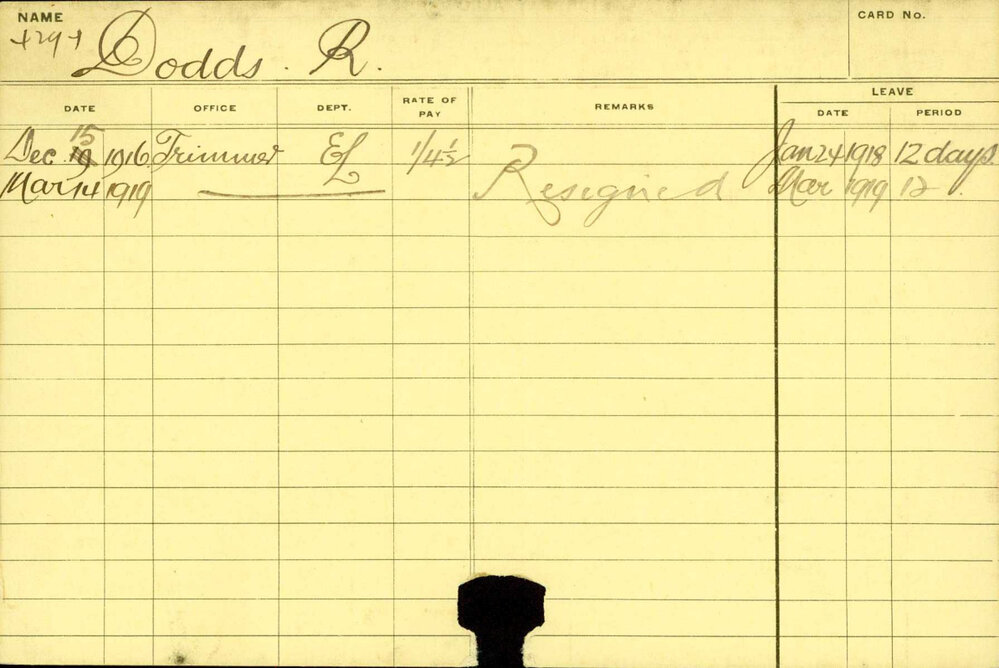 NAME
Dodds. R.
CARD No.
DATE OFFICE DEPT. RATE OF PAY REMARKS LEAVE DATE PERIOD
Dec. 15 1916 Trimmer EL 1/4½ Jan 24 1918 12 days.
Mar 14 1919 Resigned Mar 1919 12